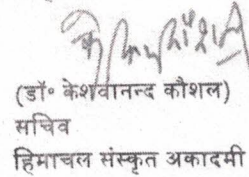 (डॉ॰ केशवानन्द कौशल)
सचिव
हिमाचल संस्कृत अकादमी